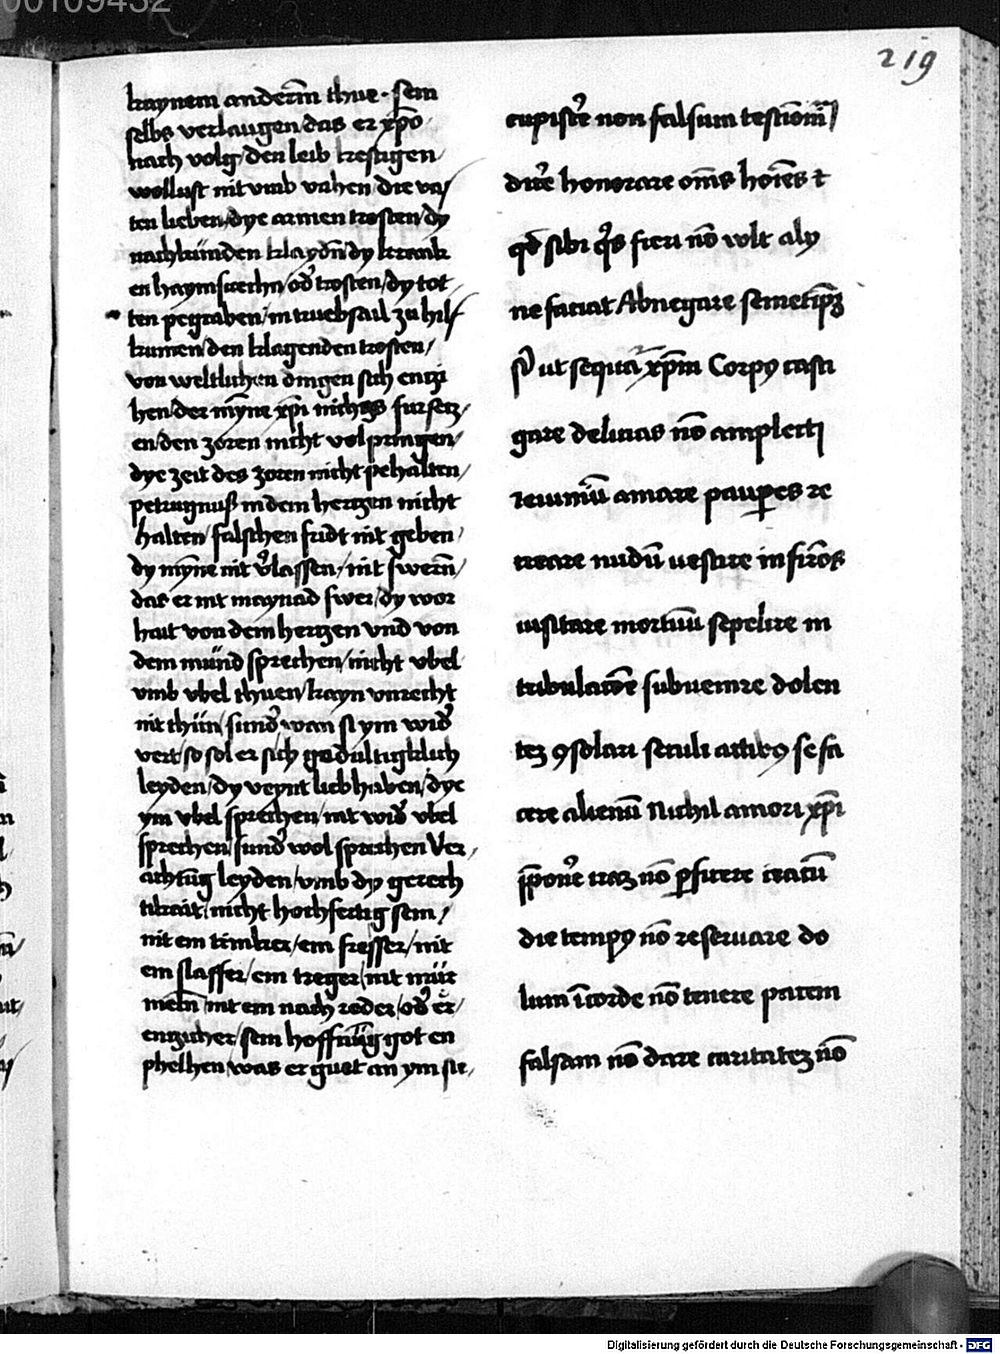 219
kaynem anderm̄ thue · sein
selbs verlaugen das er xp̄o
nach volg / den leib kestigen /
wollust nit vmb vahen / die vas
ten lieben / dye armen trosten / dy
nachkünden klaydn̄ / dy krank
en haymsuechn̄ / od̓ trosten / dy tot
ten pegraben / in truebsail zu hilf
kumen / den klagenden trosten /
von weltlichen dingen sich enczi
hen / der mȳne xp̄i nichcs fursecz /
en / den zoren nicht volpringen /
dye zeit des zoren nicht pehalten /
petrugnuß in dem herczen nicht
halten / falschen fridt nit geben /
dy mȳne nit v̓lassen / nit swern̄ /
das er nit maynad swer / dy wor
hait von dem herczen vnd von
dem mund sprechen / nicht vbel
vmb vbel thuen / kayn vnrecht
nit thün / sund̓ wan si ym wid̓
vert / so sol er sich gedultigklich
leyden / dy veynt lieb haben / dye
ym vbel sprechen / nit wid̓ vbel
sprechen / sund̓ wol sprechen Ver /
achtūg leyden / vmb dy gerech
tikait / nicht hochfertig sein /
nit ein trinker / ein fresser / nit
ein slaffer / ein treger / nit mür
meln̄ / nit ein nach reder / od̓ er̓
enczicher / sein hoffnūg got en
phelhen / was er guet an ym sie /
cupisc̓e non falsum testīom̄
dic̓e honorare om̄s hoīes ⁊
qd̓ sibi q̓s fieri nō vult aly
ne faciat Abnegare semetip̄ꝫ
si ut sequat̓ xp̄m Corpꝰ casti
gare delicias nō amplecti
ieiuniū amare paup̱es re
creare nudū uestire infirōs
uisitare mortuū sepelire in
tribulacōe subuenire dolen
teꝫ ꝯsolari seculi actibꝰ se fa
cere alienū Nichil amori xp̄i
p̄pon̓e iraꝫ nō ꝑficere iracū
die tempꝰ nō reseruare do
lum ī corde nō tenere pacem
falsam nō dare caritateꝫ nō
Digitalisierung gefördert durch die Deutsche Forschungsgemeinschaft - DFG